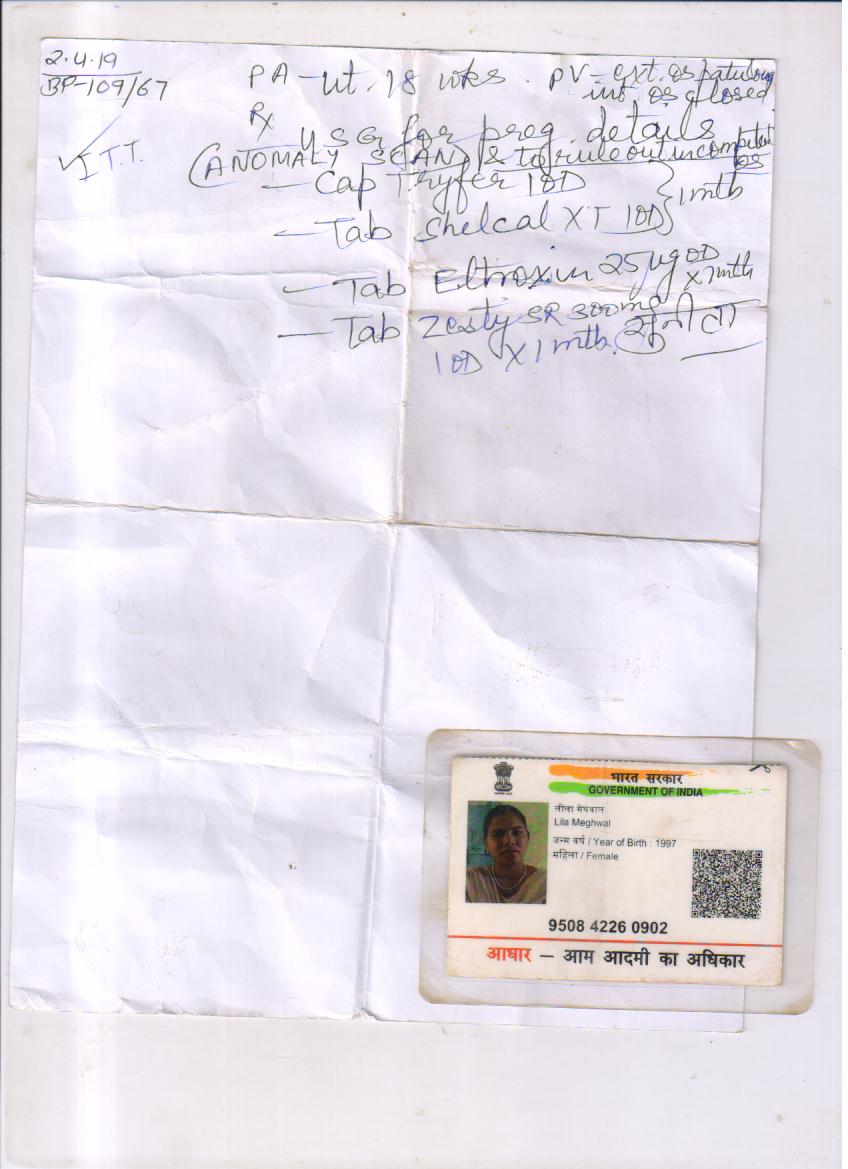 2.4.19
BP-109/67
PA - ut. 18 wks. PV - ext. os patulous
int os closed
Rx
USG for preg. details
✓ I T.T.
(ANOMALY SCAN) & to rule out incompetent os
— Cap Tryfer 1OD
— Tab Shelcal XT 1OD } 1 mth
— Tab Eltroxin 25 µg OD
x 1 mth
— Tab Zesty SR 300 mg
1OD x 1 mth. सुनीता
भारत सरकार
GOVERNMENT OF INDIA
लीला मेघवाल
Lila Meghwal
जन्म वर्ष / Year of Birth : 1997
महिला / Female
9508 4226 0902
आधार – आम आदमी का अधिकार